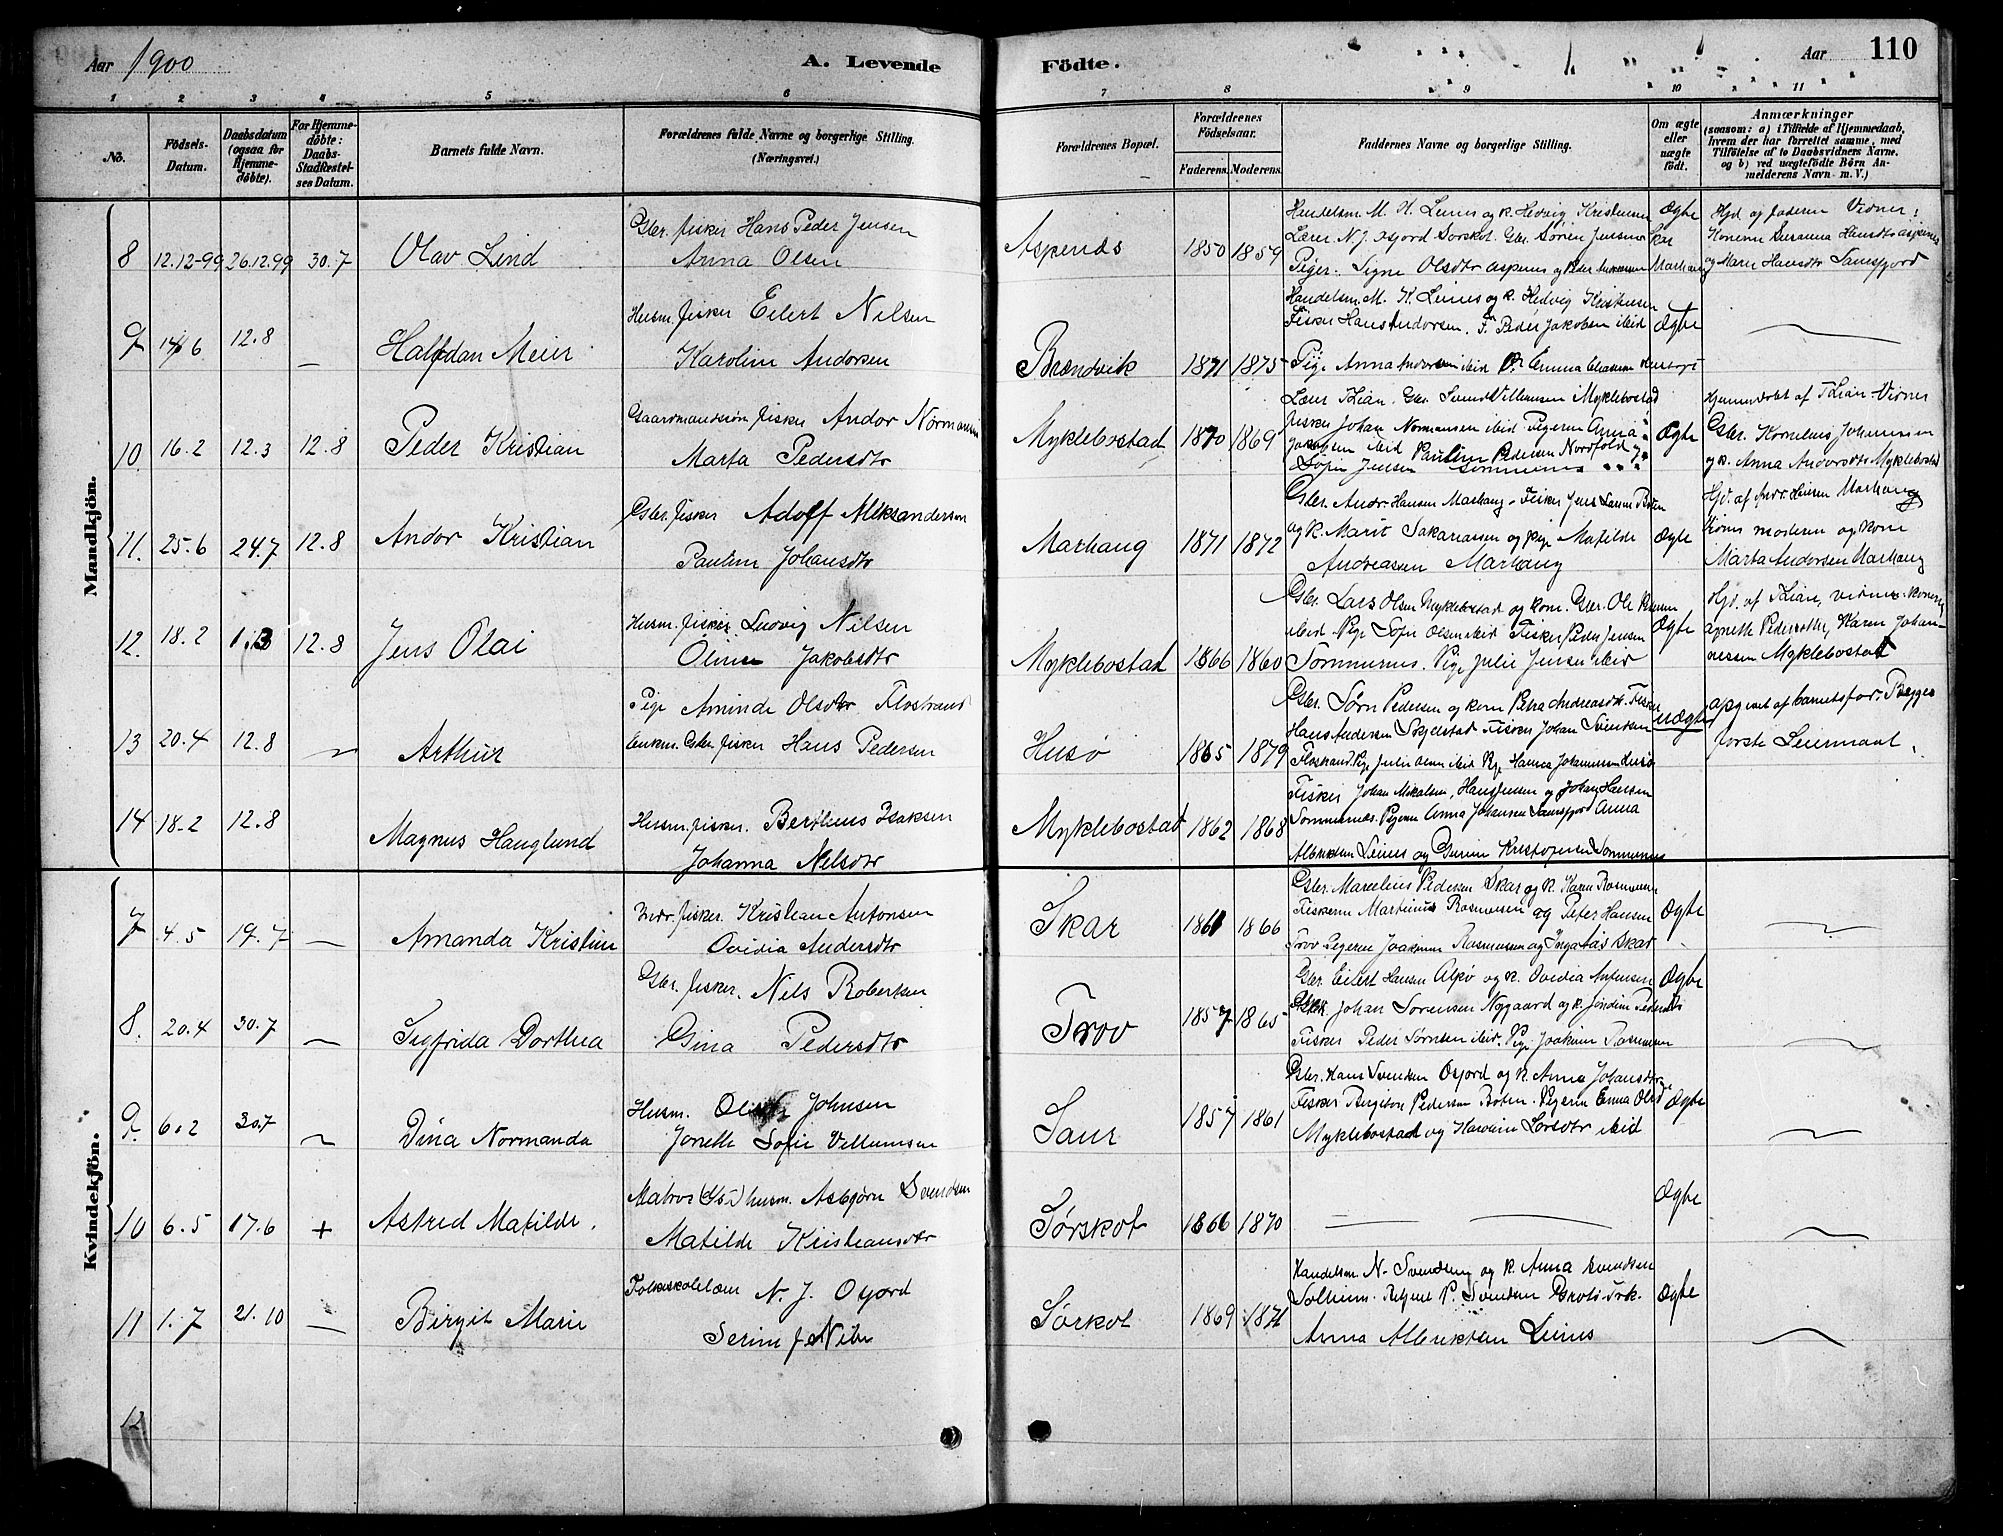 Aar 1900
A. Levende
Födte.
Aar 110
1 2 3 4 5 6 7 8 9 10 11
No.
Födsels-Datum.
Daabsdatum (ogsaa for Hjemme-döbte).
For Hjemme-döbte: Daabs-Stadfæstel-ses Datum.
Barnets fulde Navn.
Forældrenes fulde Navne og borgerlige Stilling.
(Næringsvei.)
Forældrenes Bopæl.
Forældrenes Födselsaar.
Faderens. Moderens.
Faddernes Navne og borgerlige Stilling.
Om ægte eller uægte födt.
Anmærkninger
(saasom: a) i Tilfælde af Hjemmedaab,
hvem der har forrettet samme, med
Tilföielse af to Daabsvidners Navne.
og b) ved uægtefödte Börn An-
melderens Navn m. V.)
Mandkjön.
8 12.12-99 26.12.99 30.7 Olav Lind
Gbr. fisker Hans Peder Jensen
Anna Olsen
Aspenæs 1850 1859
Handelsm. M. K. Leines og k. Hedvig Kristensen
Lærer N. J. Osjord Sørskot. Gbr. Søren Jensen
Skar
Piger. Signe Olsdtr Aspenes og Marhaug
Ægte
Hjd. af faderen Vidner:
Konerne Susanna Hansdtr Aspenes
og Marie Hansdtr
9 14/6 12.8 — Halfdan Meier
Husm. fisker Eilert Nilsen
Karolin Andorsen
Brændvik 1871 1875
Handelsm. M. K. Leines og k. Hedvig Kristensen
Fisker Hans Andorsen. F. Peder Jakobsen ibid
Pige Anna Andorsen ibid P. Emma
Ægte
10 16.2 12.3 12.8 Peder Kristian
Gaardmandssøn fisker Andor Normansen
Marta Pedersdtr
Myklebostad 1870 1869
Lærer T Lian. Gbr. Villumsen Myklebostad
fisker Johan Normansen ibid Pigerne Anna
Jakobsen ibid Pauline Pedersen Nordfold
Sofie Jensen Sommernes
Ægte
Hjemmedøbt af T Lian. Vidner
Gbr. Kornelius Johannesen
og k. Anna Andorsdtr Myklebostad
11. 25.6 24.7 12.8 Andor Kristian
Gbr. fisker Adolf Aleksandersen
Pauline Johansdtr
Marhaug 1871 1872
Gbr. Andr. Hansen Marhaug. Fisker Jens Larsen Boten
og k. Marit Sakariassen og pige Matilde
Andreassen Marhaug
Ægte
Hjd. af Andr. Hansen Marhaug
moderen og kone
Marta Andorsen Marhaug
12. 18.2 1.3 12.8 Jens Olai
Husm. fisker Ludvig Nilsen
Oline Jakobsdtr
Myklebostad 1866 1860
Gbr. Lars Olsen Myklebostad og kone. Gbr. Ole
ibid. Pige Sofie Olsen ibid Fisker Peder Jensen
Sommernes. Pige Julie Jensen ibid
Ægte
Hjd. af T Lian, vidner. konerne
Agnette Pedersdtr, Karen Johan-
nessen Myklebostad
13 20.4 12.8 — Arthur
Pige Aminde Olsdtr Flostrand
Enkm. Gbr. fisker Hans Pedersen
Husø 1865 1879
Gbr. Sørn Pedersen og kone Petra Andreasdtr. Fisker
Hans Andersen Fisker Johan Svendsen
Flostrand. Pige Julie Olsen ibid Pige Hanna Johannessen Husø
uægte
opgivet af barnets far. Begges
første Leiermaal.
14 18.2 12.8 Magnus Hauglund
Husm. fisker. Bertheus Isaksen
Johanna Nelsdtr
Myklebostad 1862 1868
Fisker Johan Mikalsen, Hans Jensen og Johan Hansen
Sommernes. Pigerne Anna Johansen Anna
Albriktsen Leines og Kristofersen Sommernes
Kvindekjön.
7 4.5 19.7 — Amanda Kristine
Indr. fisker. Kristian Antonsen
Ovidia Andersdtr
Skar 1861 1866
Gbr. Marcelius Pedersen Skar og k. Karen Rasmussen
Fiskerne Martinus Rasmussen og Peter Hansen
Trov Pigerne Joakimine Rasmussen og Skar
Ægte
8. 20.4 30.7 — Sigfrida Dorthea
Gbr. fisker. Nils Robertsen
Gina Pedersdtr
Trov 1857 1865
Gbr. Eilert Hansen Alpø og k. Ovidia Antonsen
Gbr. Johan Sørensen Nygaard og k.
Fisker Peder Sørnsen ibid. Pige Joakimine Rasmussen
Ægte
9. 6.2 30.7 — Dina Normanda
Husm. Johnsen
Jonette Sofie Villumsen
Saur 1857 1861
Gbr. Hans Svendsen Osjord og k. Anna Johansdtr
Fisker Birgiton Pedersen Boten. Pigerne Emma Olsd
Myklebostad og Karoline Larsdtr ibid
Ægte
10 6.5 17.6 + Astrid Matilde.
Matros husm. Asbjørn Svendsen
Matilde Kristiansdtr
Sørskot 1866 1870
Ægte
11 1.7 21.10 — Birgit Marie
Folkeskolelærer N. J. Osjord
Serine J
Sørkot 1869 1871
Handelsm. N. Svendsen og k. Anna Svendsen
Solheim. P. Svendsen
Anna Albriktsen Leines
Ægte
12